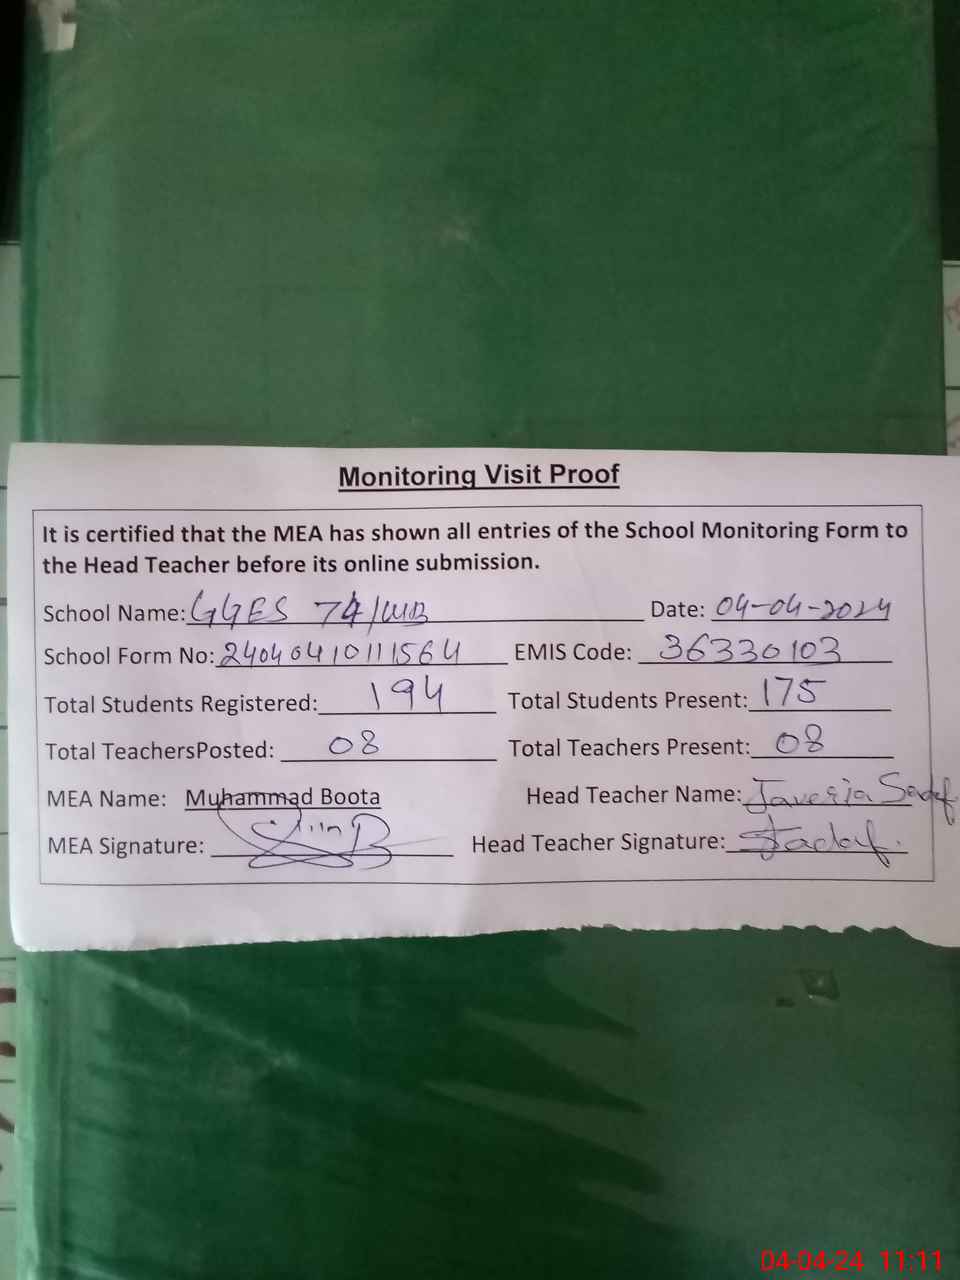 Monitoring Visit Proof
It is certified that the MEA has shown all entries of the School Monitoring Form to
the Head Teacher before its online submission.
School Name: GGES 74/WB Date: 04-04-2024
School Form No: 24040410111564 EMIS Code: 36330103
Total Students Registered: 194 Total Students Present: 175
Total TeachersPosted: 08 Total Teachers Present: 08
MEA Name: Muhammad Boota Head Teacher Name: Javeria Sadaf
MEA Signature: Head Teacher Signature: Sadaf.
04-04-24 11:11